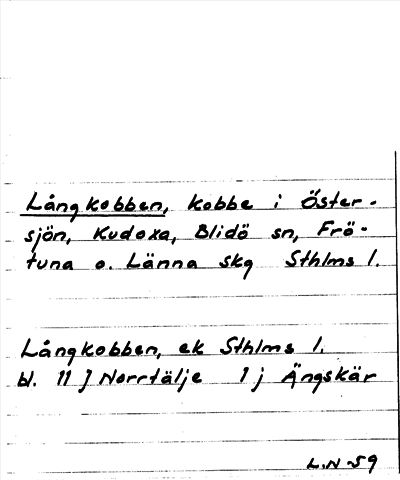 Långkobben, kobbe i Öster-
sjön, Kudoxa, Blidö sn, Frö-
tuna o. Länna skg Sthlms l.
Långkobben, ek Sthlms l.
bl. 11 J Norrtälje 1 j Ängskär
L.N 59